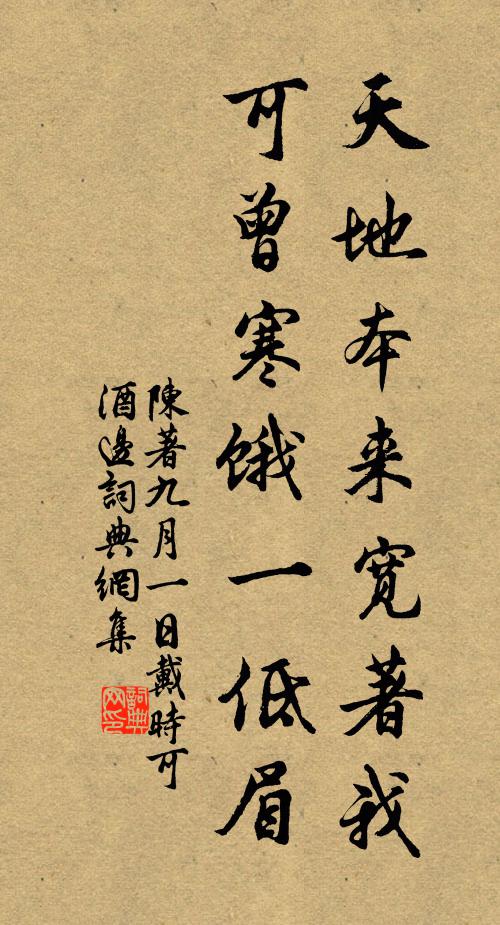 天地本来宽著我
可曾寒饿一低眉
陳著九月一日戴時可
酒邊詞典網集
詞典网印